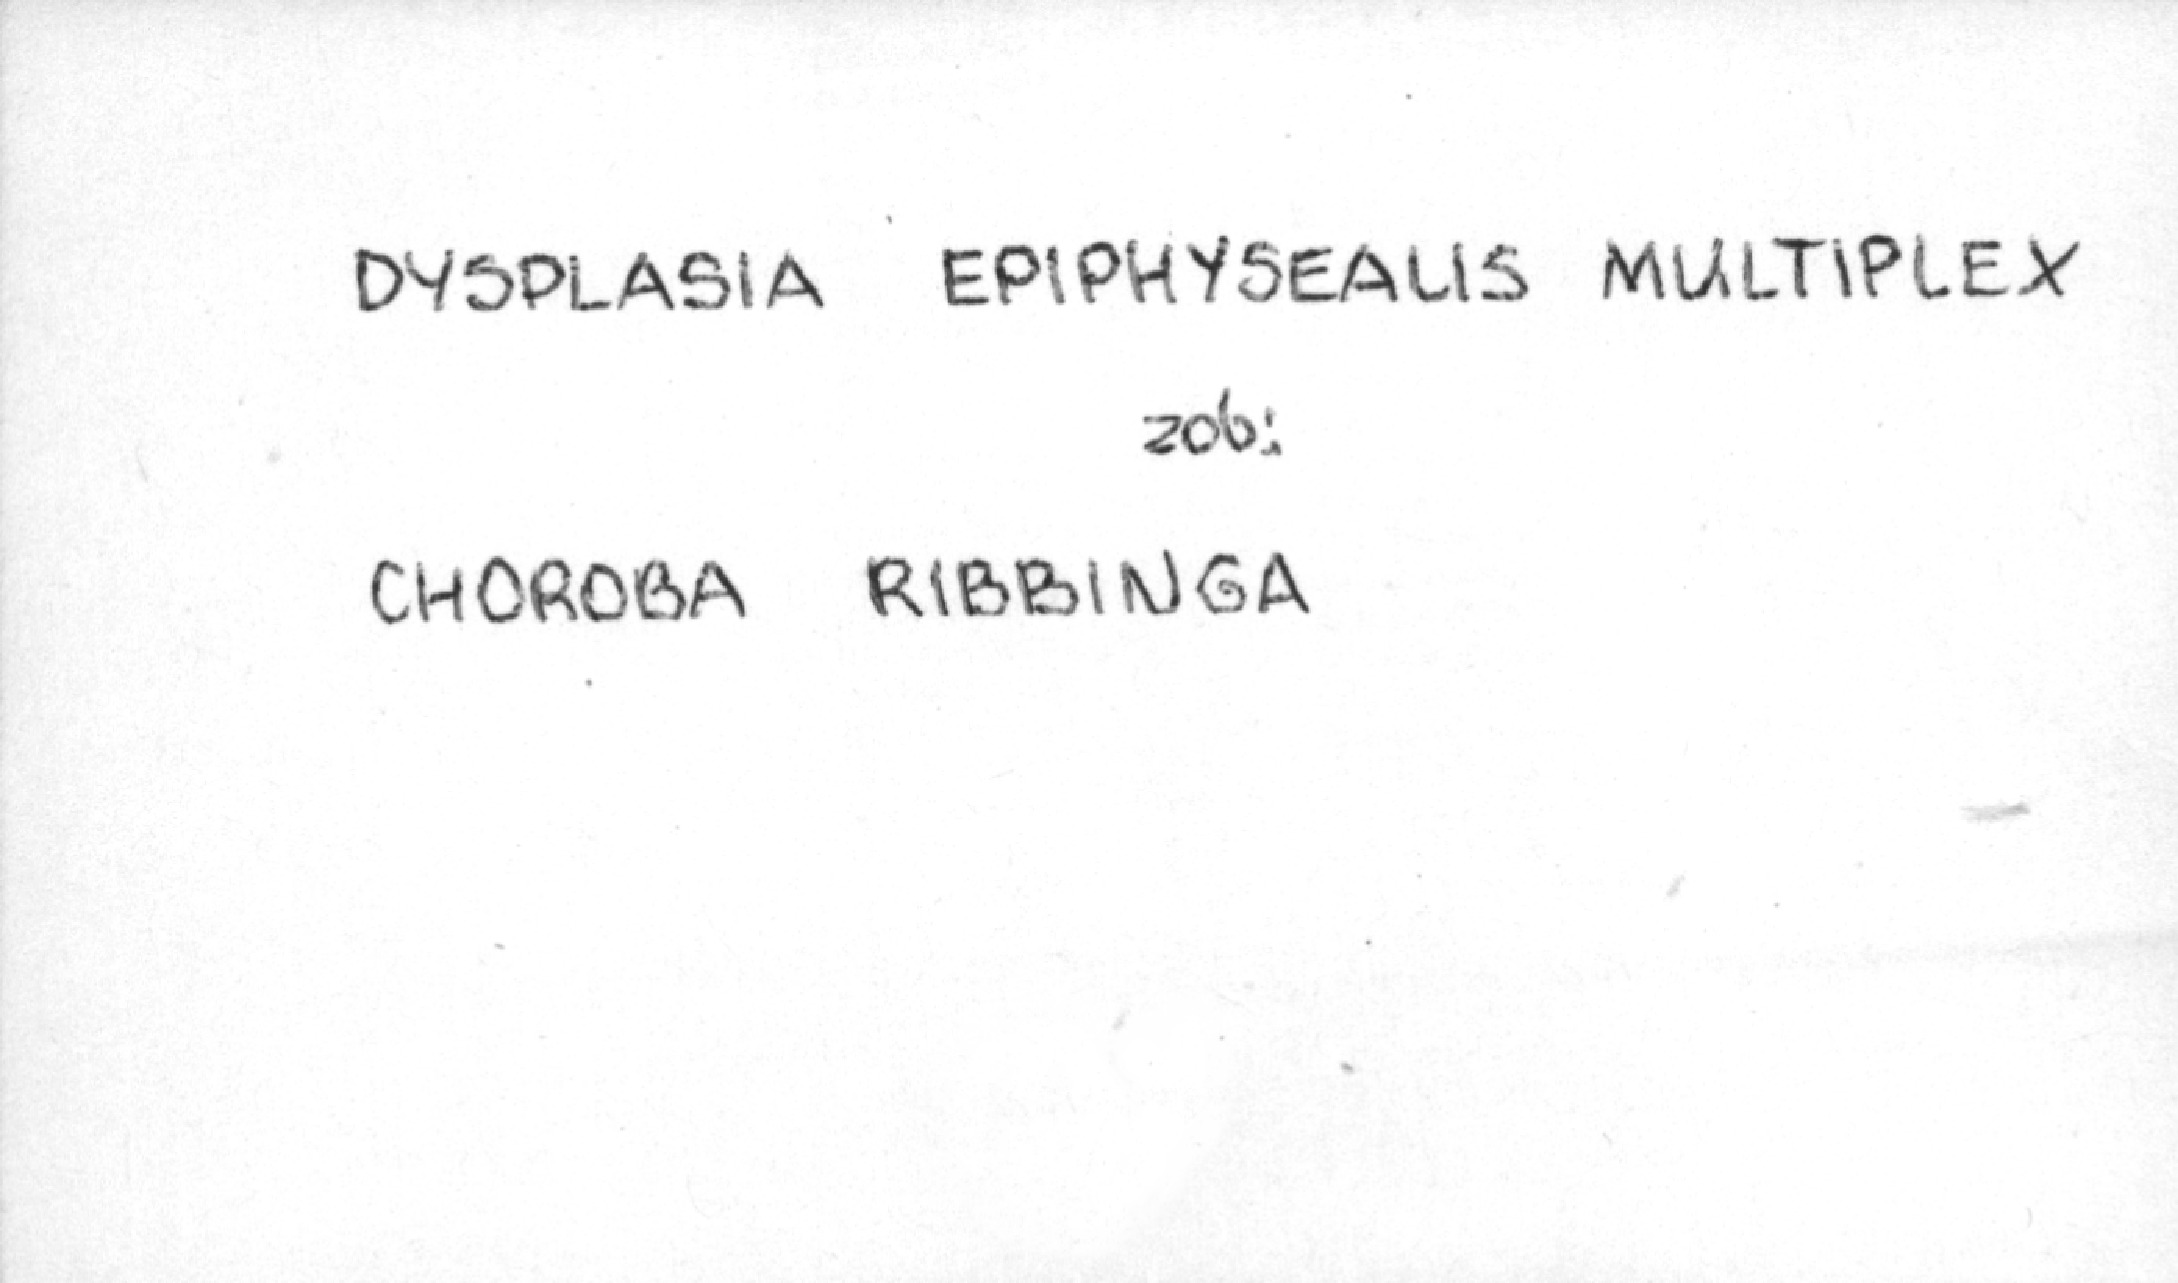 DYSPLASIA EPIPHYSEALIS MULTIPLEX
zob:
CHOROBA RIBBINGA